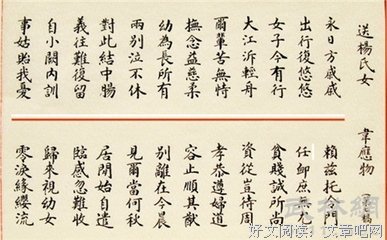 送楊氏女
永日方戚戚
出行復悠悠
女子今有行
大江泝輕舟
爾輩苦無恃
撫念益慈柔
幼為長所育
兩別泣不休
對此結中腸
義往難復留
自小闕內訓
事姑貽我憂
韋應物
賴茲托令門
任卹庶無尤
貧賤誠所尚
資從豈待周
孝恭遵婦道
容止順其猷
別離在今晨
見爾當何秋
居閒始自遣
臨感忽難收
歸來視幼女
零淚緣纓流
好文阅读:|文章吧网